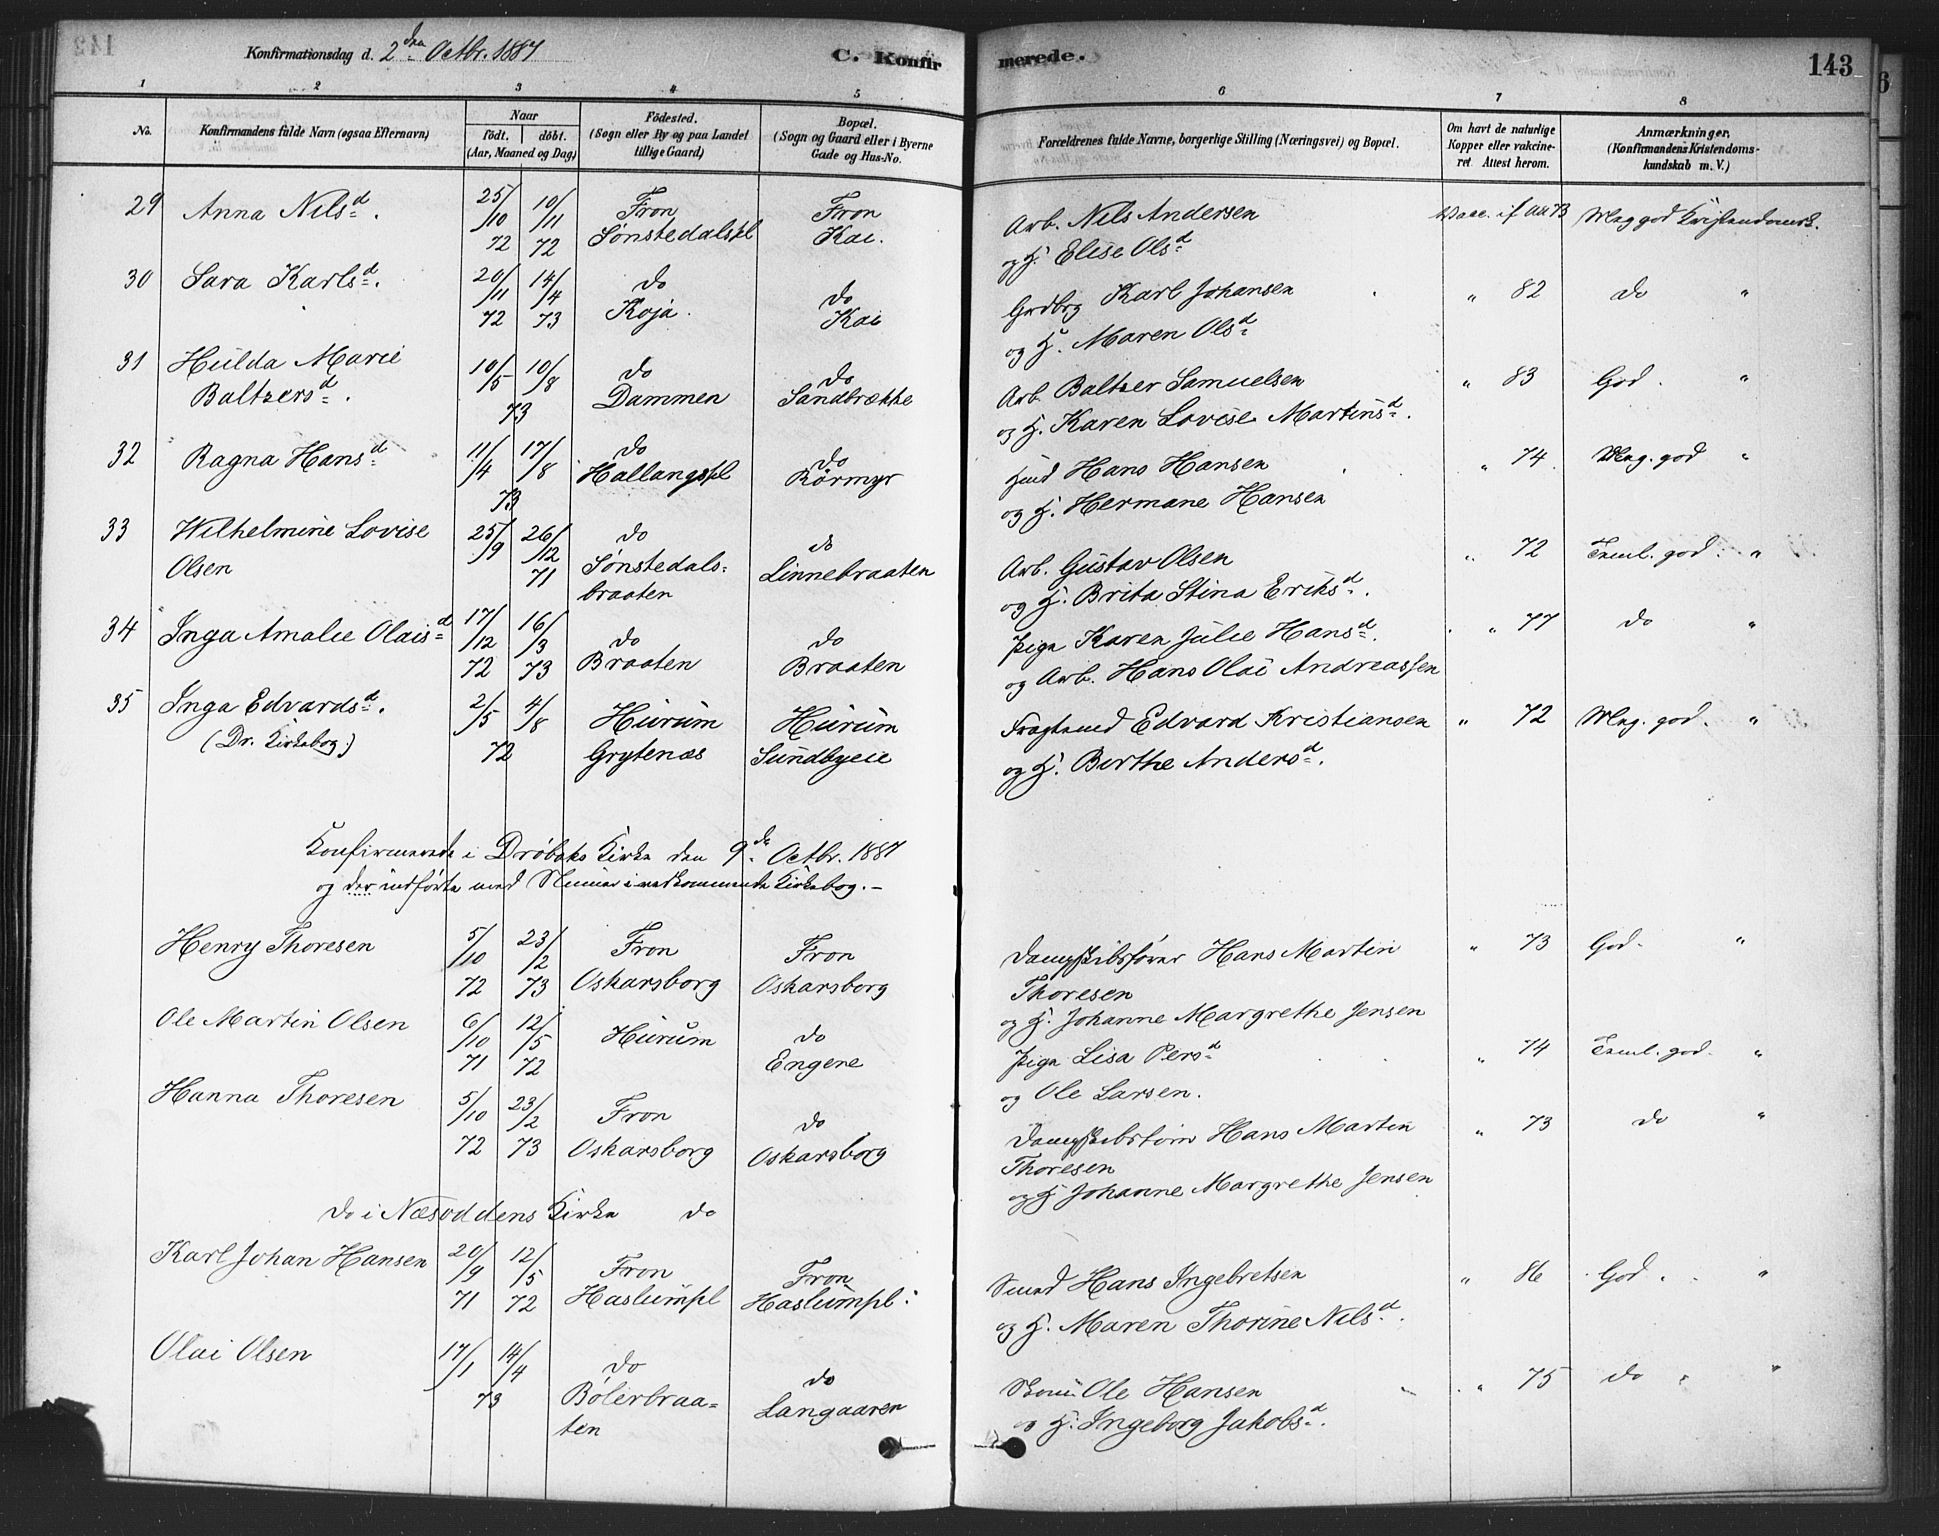 Konfirmationsdag d. 2den Octbr. 1887
C. Konfirmerede.
143
1 2 3 4 5 6 7 8
No.
Konfirmandens fulde Navn (ogsaa Efternavn)
Naar
födt. döbt.
(Aar, Maaned og Dag)
Födested.
(Sogn eller By og paa Landet
tillige Gaard)
Bopæl.
(Sogn og Gaard eller i Byerne
Gade og Hus-No.
Forældrenes fulde Navne, borgerlige Stilling (Næringsvei) og Bopæl.
Om havt de naturlige
Kopper eller vakcine-
ret Attest herom.
Anmærkninger,
(Konfirmandens Kristendoms-
kundskab m. V.)
29 Anna Nilsd. 25/10 72 10/11 72 Fron Sønstedalspl Fron Kai. Arb. Nils Andersen Vacc. if att 73 Meg god Kristendomsk.
og H. Elise Olsd
30 Sara Karlsd. 20/11 72 14/4 73 do Koja. do Kai Grdbrg Karl Johansen " 82 do "
og H. Maren Olsd
31 Hulda Marie 10/5 10/8 73 do Dammen do Sandbrække Arb. Baltzer Samuelsen " 83 God. "
Baltzersd. og H. Karen Lovise Martinsd.
32 Ragna Hansd 11/4 17/8 73 do Hallangspl do Rörmyr Hmd Hans Hansen " 74 Meg. god "
og H. Hermane Hansen
33 Wilhelmine Lovise 25/9 26/12 71 do Sønstedals- do Linnebraaten Arb. Gustav Olsen " 72 Teml. god. "
Olsen braaten og H. Brita Stina Eriksd.
34 Inga Amalie Olaisd 17/12 72 16/3 73 do Braaten do Braaten Pige Karen Julie Hansd. " 77 do "
og Arb. Hans Olai Andreassen
35 Inga Edvardsd. 2/5 4/8 72 Hurum Grytenæs Hurum Sundbyeie Fragtmd Edvard Kristiansen " 72 Meg. god. "
(Dr. Kirkebog.) og H. Berthe Andersd.
Konfirmerede i Drøbaks Kirke den 9de Octbr. 1887
og der indførte med Numer i vedkommende Kirkebog. –
Henry Thoresen 5/10 72 23/2 73 Fron Oskarsborg Fron Oskarsborg Dampskibsfører Hans Martin " 73 God. "
Thoresen
og H. Johanne Margrethe Jensen
Ole Martin Olsen 6/10 71 12/5 72 Hurum do Engene Pige Lisa Persd " 74 Teml. god. "
og Ole Larsen.
Hanna Thoresen 5/10 72 23/2 73 Fron Oskarsborg do Oskarsborg Hans Martin " 73 do "
Thoresen
og H Johanne Margrethe Jensen
do i Næsoddens Kirke do
Karl Johan Hansen 20/9 71 12/5 72 Fron Haslumpl Fron Haslumpl. Smed Hans Ingebretsen " 86 God. "
og H. Maren Thorine Nilsd.
Olai Olsen 17/1 14/4 73 do Bölerbraa- do Langaaren Ole Hansen " 75 do "
ten og H. Ingeborg Jakobsd.